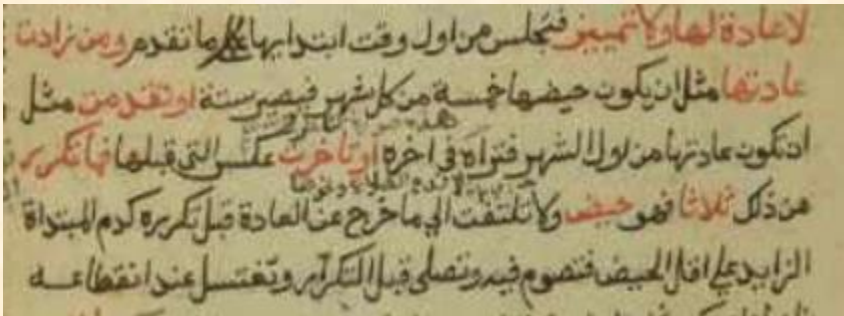 لا عادة لها ولا تمييز فتجلس من اول وقت ابتدابها علي ما تقدم ومن زادت
عادتها مثل ان يكون حيضها خمسة من كل شهر فيصير ستة او تقدمت مثل
ان تكون عادتها من اول الشهر فتراه في اخره او تاخرت عكس التي قبلها فما تكرر
من ذلك ثلاثا فهو حيض ولا تلتفت الي ما خرج عن العادة قبل تكرره كدم المبتداة
الزايد علي اقل الحيض فتصوم فيه وتصلي قبل التكرار وتغتسل عند انقطاعه